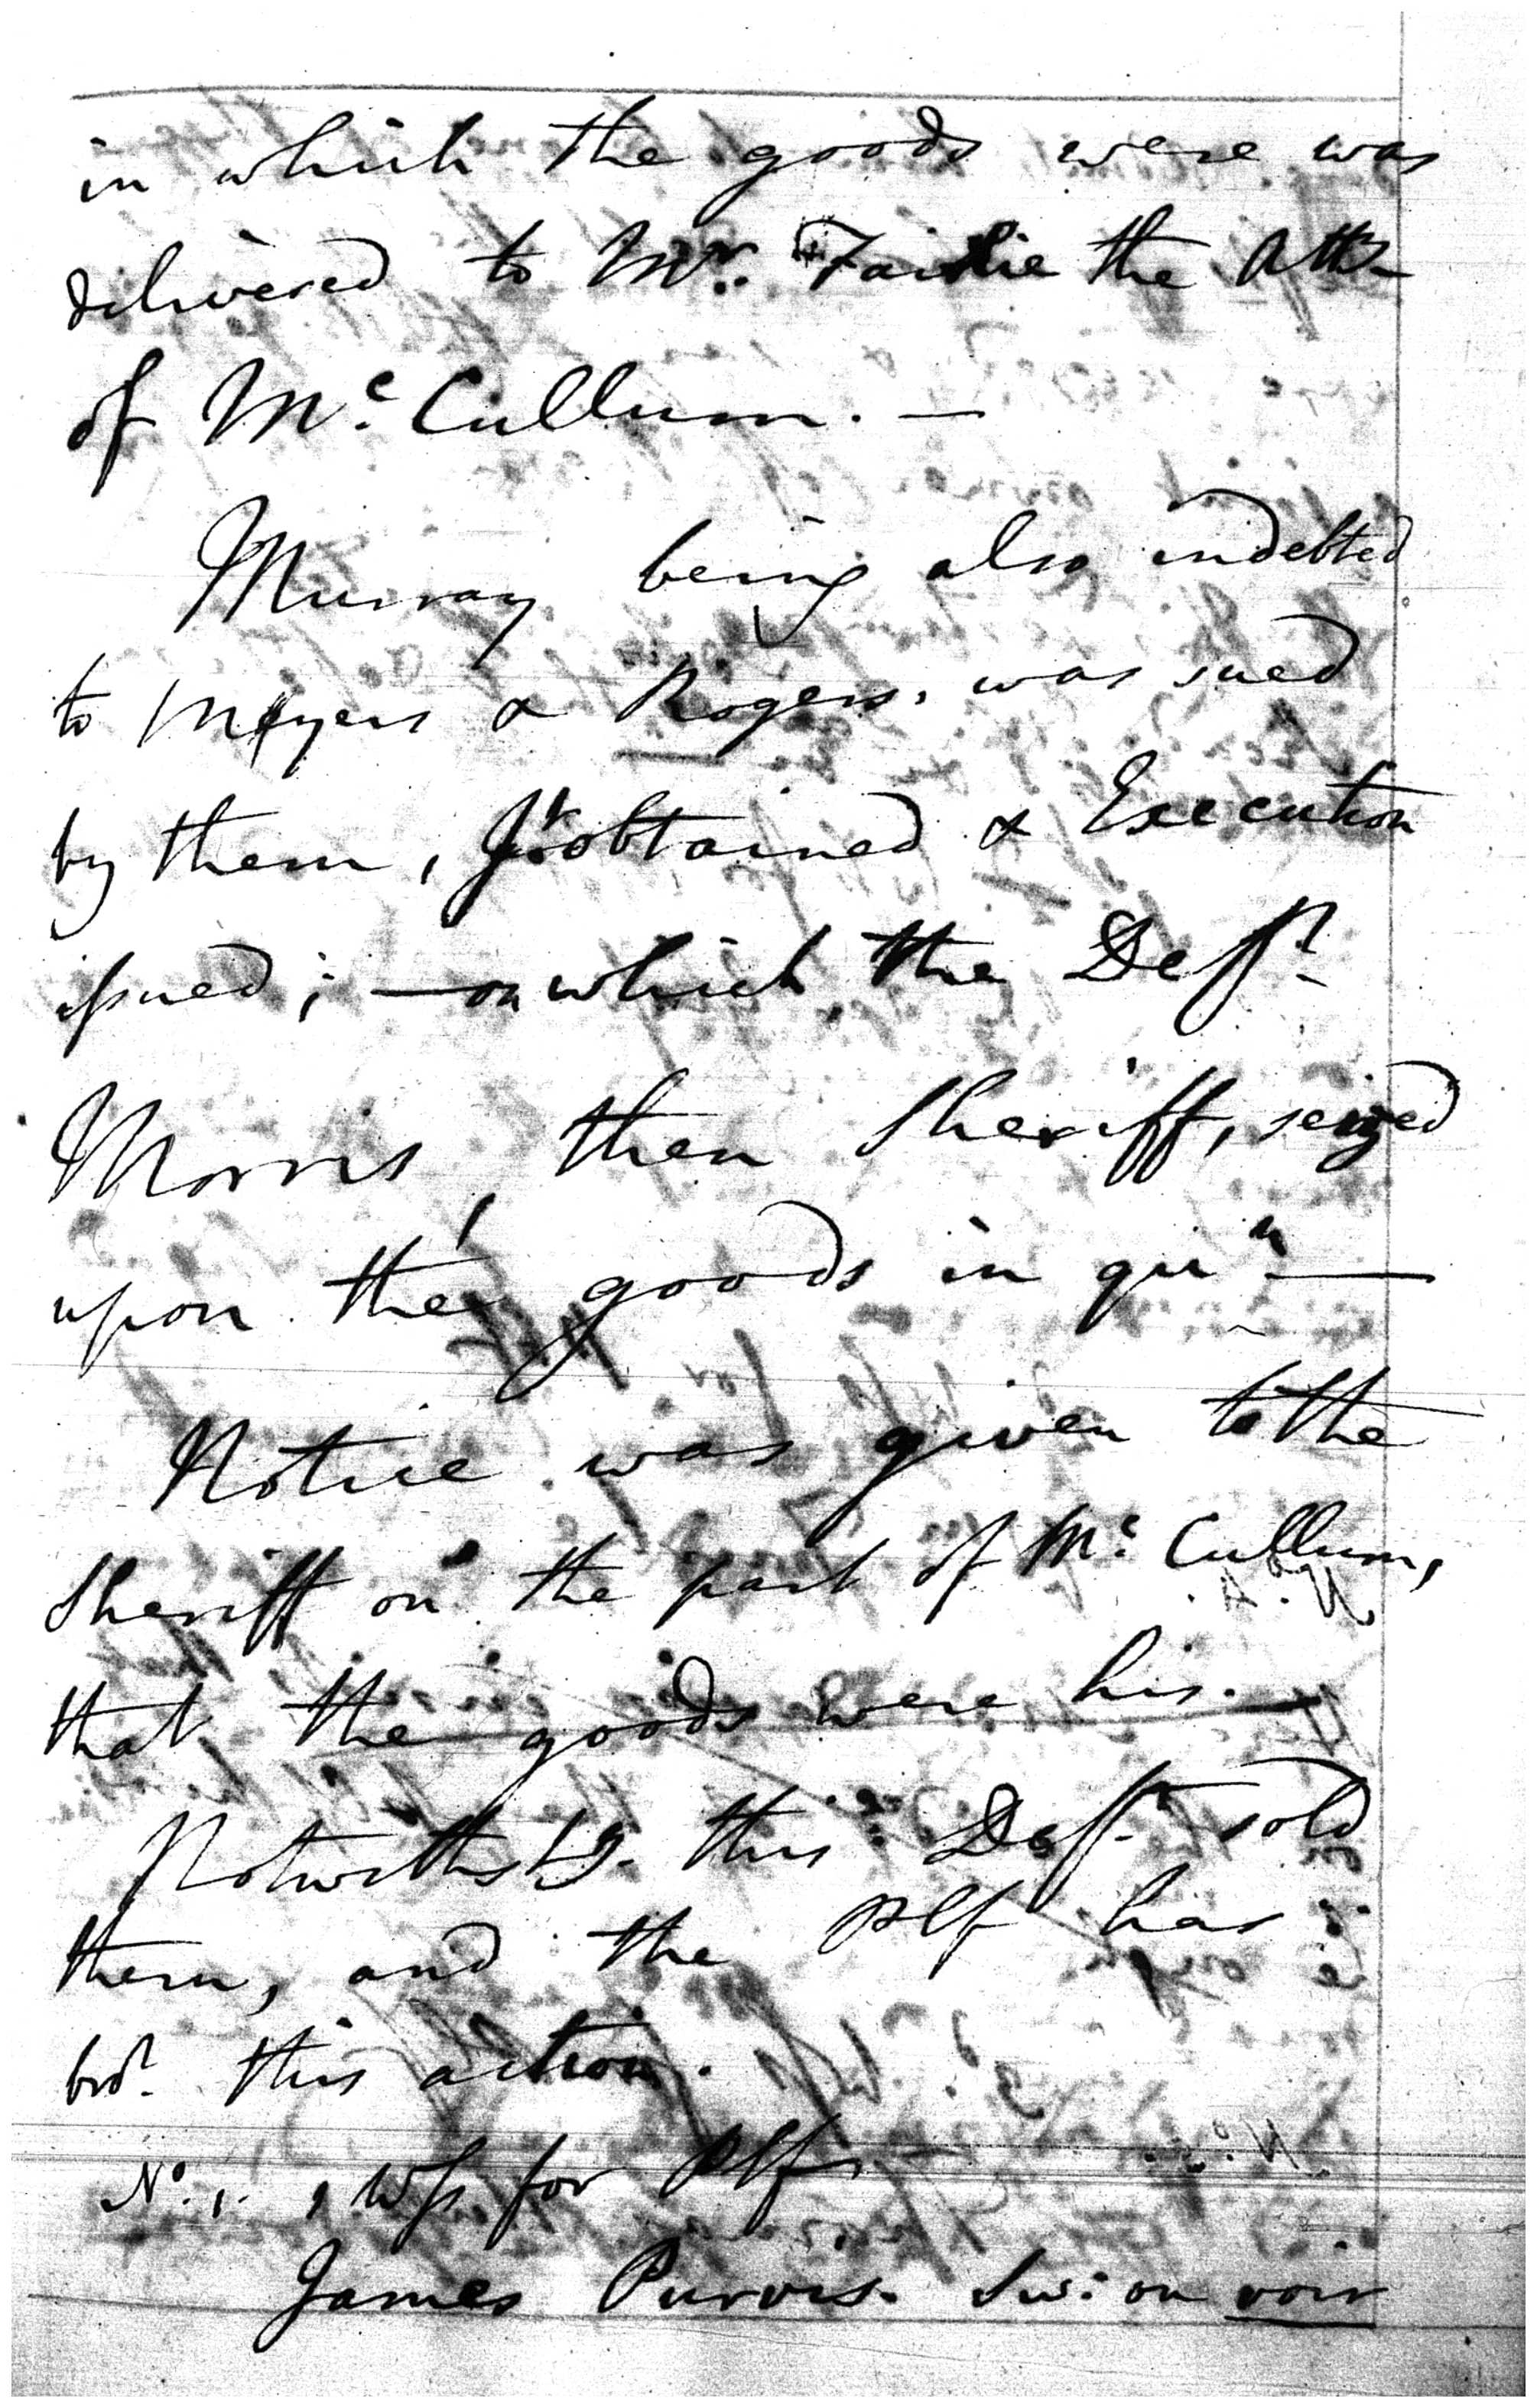 in which the goods were was
delivered to Mr. Fairlie the Atty
of Mc. Cullum. —
Murray being also indebted
to Meyers & Rogers, was sued
by them, Jt. obtained & Execution
issued; — on which the Deft.
Morris, then Sheriff, seized
upon the goods in qun. —
Notice was given to the
Sheriff on the part of Mc. Cullum,
that the goods were his. —
Notwithstdg. this Deft. sold
them, and the Plf has
brot. this action.
No. 1. Wss. for Plf
James Purvis. Sw: on voir